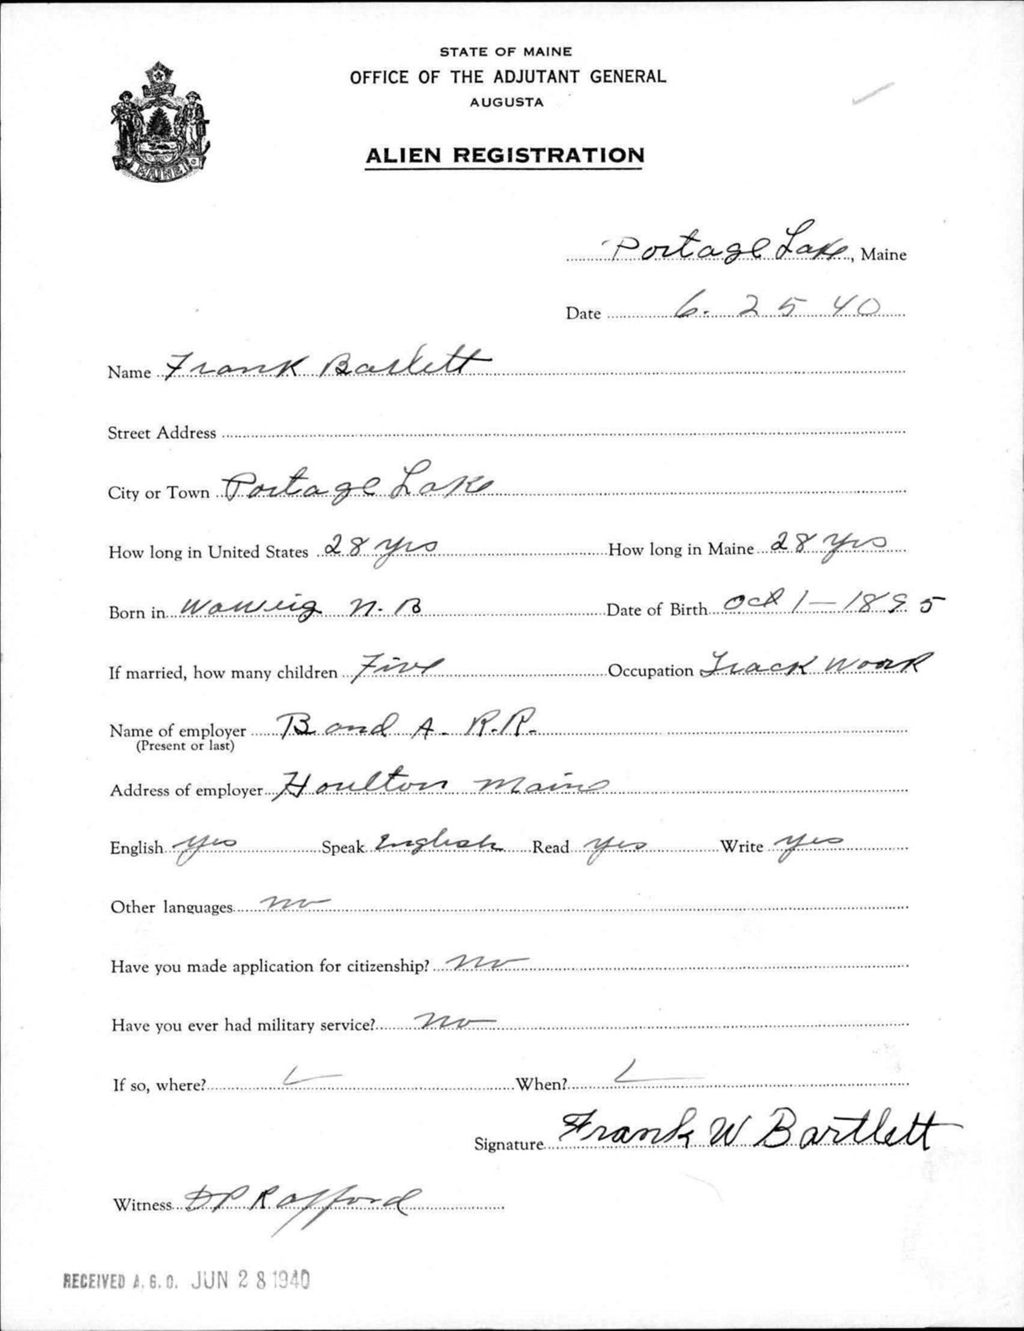 STATE OF MAINE
OFFICE OF THE ADJUTANT GENERAL
AUGUSTA
ALIEN REGISTRATION
Portage Lake, Maine
Date 6. 25 40
Name Frank Bartlett
Street Address
City or Town Portage Lake
How long in United States 28 yrs How long in Maine 28 yrs
Born in Waweig N. B Date of Birth Oct 1 — 1895
If married, how many children Five Occupation Track Work
Name of employer B and A. R.R.
(Present or last)
Address of employer Houlton Maine
English yes Speak English Read yes Write yes
Other languages no
Have you made application for citizenship? no
Have you ever had military service? no
If so, where? When?
Signature Frank W Bartlett
Witness DP Rafford
RECEIVED A.G.O. JUN 28 1940
MAINE